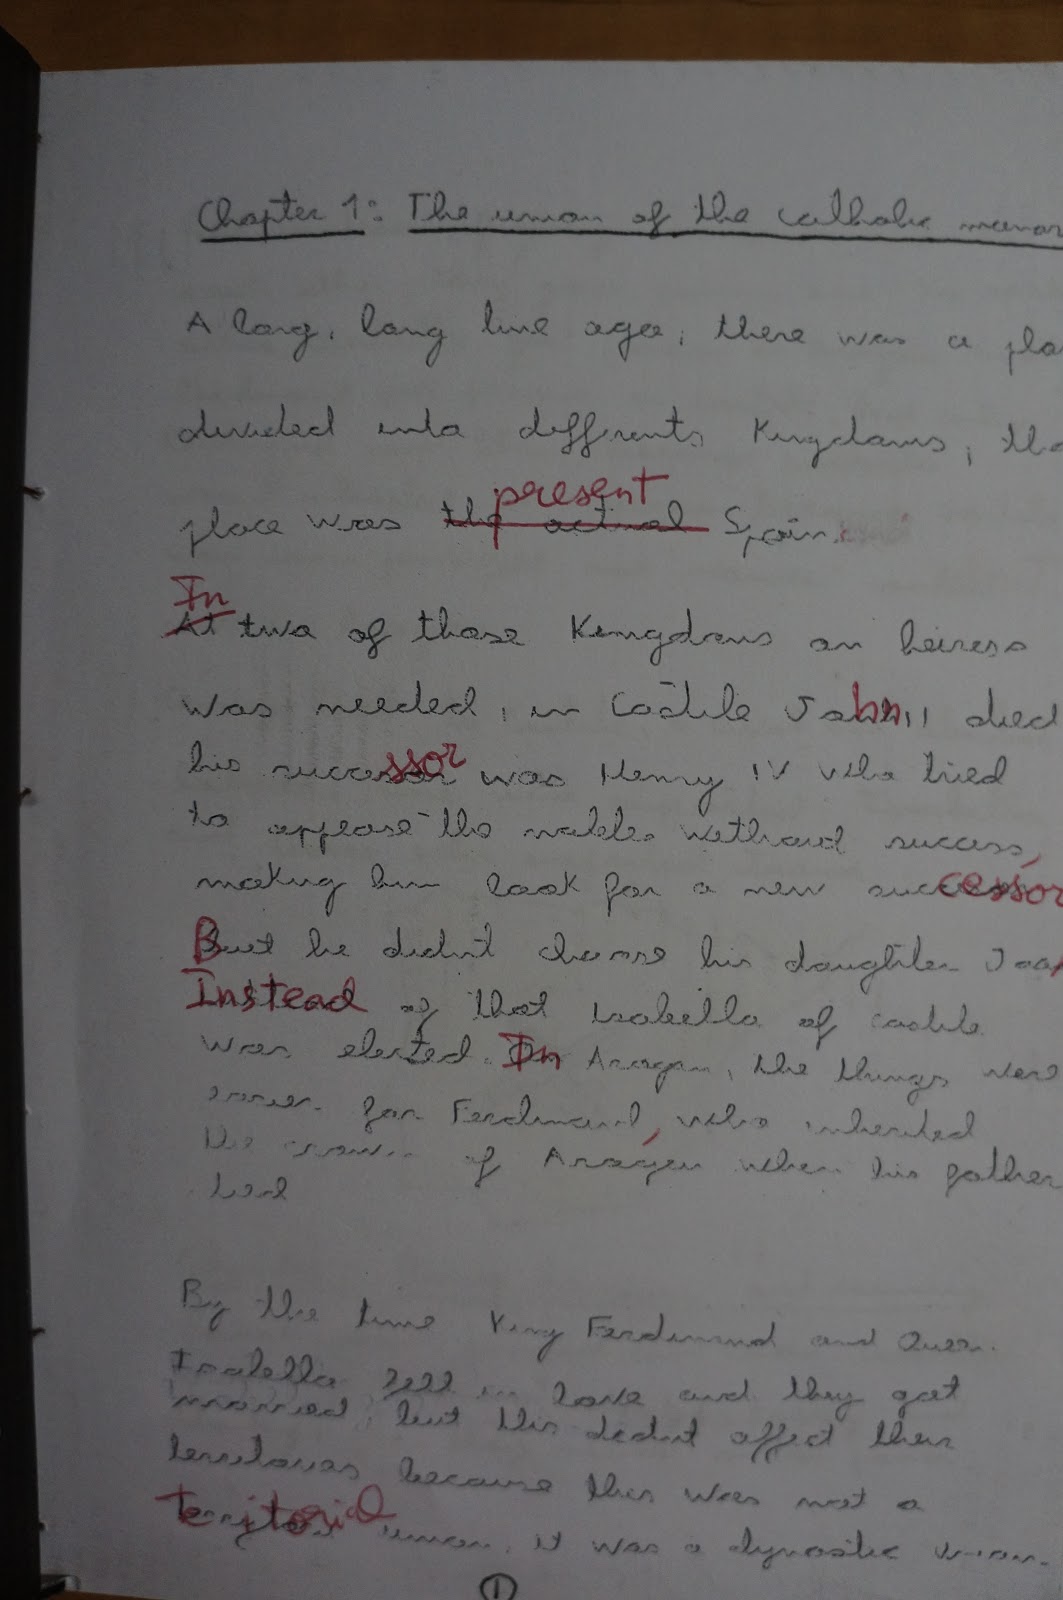 Chapter 1: The union of the catholic monar
A long, long time ago, there was a pla
divided into differents Kingdoms, the
present
place was the actual Spain.
In
At two of those Kingdoms an heiress
was needed, in Castile John II died
his successor was Henry IV who tried
to appease the nobles without success,
making him look for a new successor
But he didn't choose his daughter Joa
Instead of that Isabella of castile
was elected. In Aragon, the things were
easier for Ferdinand, who inherited
the crown of Aragon when his father
died
By the time King Ferdinand and Queen
Isabella fell in love and they got
married, but this didn't affect their
territories because this was not a
territorial union, it was a dynastic union.
1